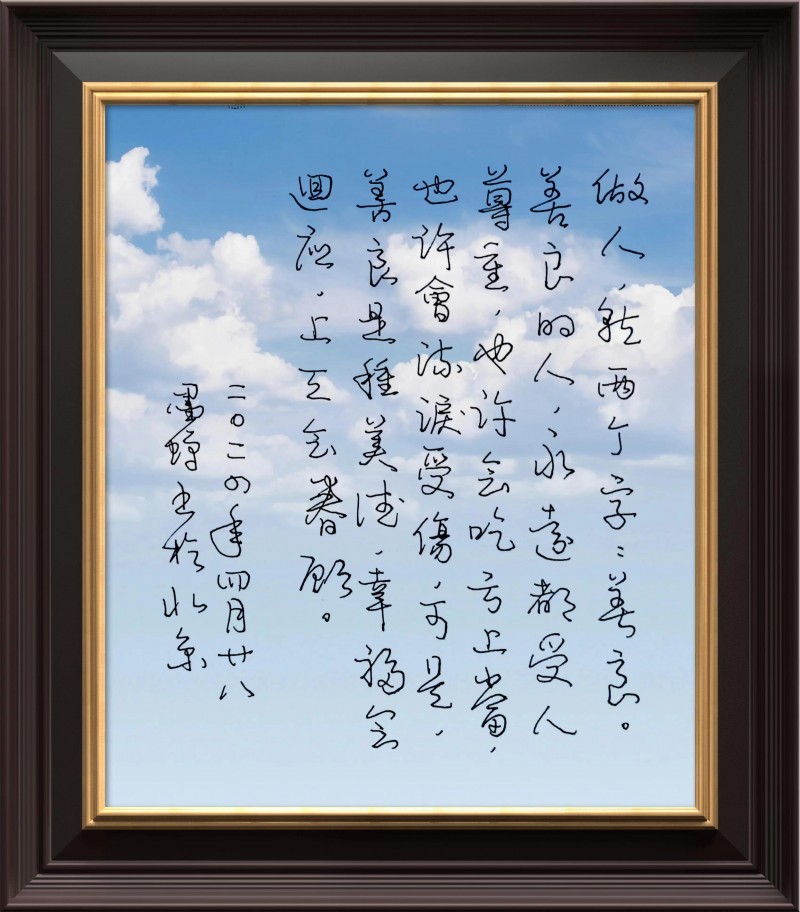 做人，就两个字：善良。
善良的人，永遠都受人
尊重，也许会吃亏上當，
也许會流淚受傷，可是，
善良是種美德，幸福会
迴应，上天会眷顾。
二〇二四年四月廿八
墨 书於北京